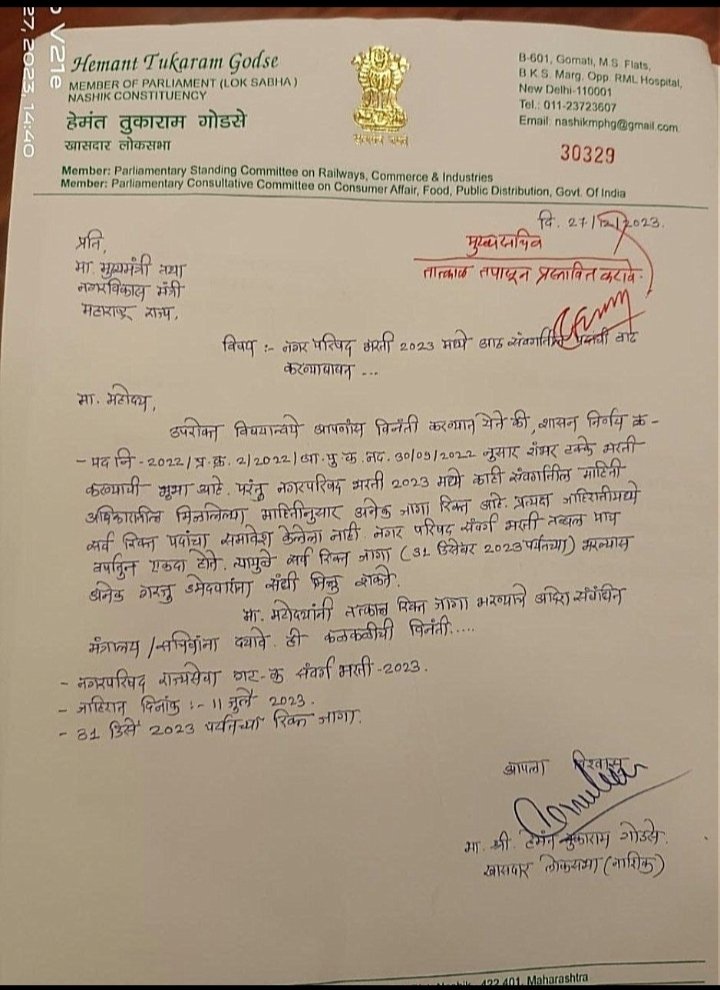 V21e
27, 2023, 14:40
Hemant Tukaram Godse
MEMBER OF PARLIAMENT (LOK SABHA)
NASHIK CONSTITUENCY
हेमंत तुकाराम गोडसे
खासदार लोकसभा
सत्यमेव जयते
B-601, Gomati, M.S. Flats,
B.K.S. Marg. Opp. RML Hospital,
New Delhi-110001
Tel.: 011-23723607
Email: nashikmphg@gmail.com
30329
Member: Parliamentary Standing Committee on Railways, Commerce & Industries
Member: Parliamentary Consultative Committee on Consumer Affair, Food, Public Distribution, Govt. Of India
दि. 27/12/2023.
प्रति,
मा. मुख्यमंत्री तथा
नगरविकास मंत्री
महाराष्ट्र राज्य.
मुख्यसचिव
तात्काळ तपासून प्रस्तावित करावे.
विषय :- नगर परिषद भरती 2023 मध्ये आठ संवर्गातील पदांची वाढ
करण्याबाबत ...
मा. महोदय,
उपरोक्त विषयान्वये आपणांस विनंती करण्यात येते की, शासन निर्णय क्र -
- पद नि - 2022/प्र.क्र. 2/2022/आ.पु.क. 2022 नुसार शंभर टक्के भरती
करण्याची मुभा आहे. परंतु नगरपरिषद भरती 2023 मध्ये काही संवर्गातील माहिती
अधिकारातील मिळालेल्या माहितीनुसार अनेक जागा रिक्त आहे. प्रत्यक्ष जाहिरातीमध्ये
सर्व रिक्त पदांचा समावेश केलेला नाही. नगर परिषद संवर्ग भरती तब्बल पाच
वर्षातून एकदा होते. त्यामुळे सर्व रिक्त जागा (31 डिसेंबर 2023 पर्यंतच्या) भरल्यास
अनेक गरजु उमेदवारांना संधी मिळु शकते.
मा. महोदयांनी तत्काळ रिक्त जागा भरण्याचे आदेश संबंधित
मंत्रालय / सचिवांना द्यावे. ही कळकळीची विनंती.....
- नगरपरिषद राज्यसेवा गट-क संवर्ग भरती-2023.
- जाहिरात दिनांक :- 11 जुलै 2023.
- 31 डिसें 2023 पर्यंतच्या रिक्त जागा.
आपला विश्वासू
मा. श्री. हेमंत तुकाराम गोडसे.
खासदार लोकसभा (नाशिक)
422 401. Maharashtra